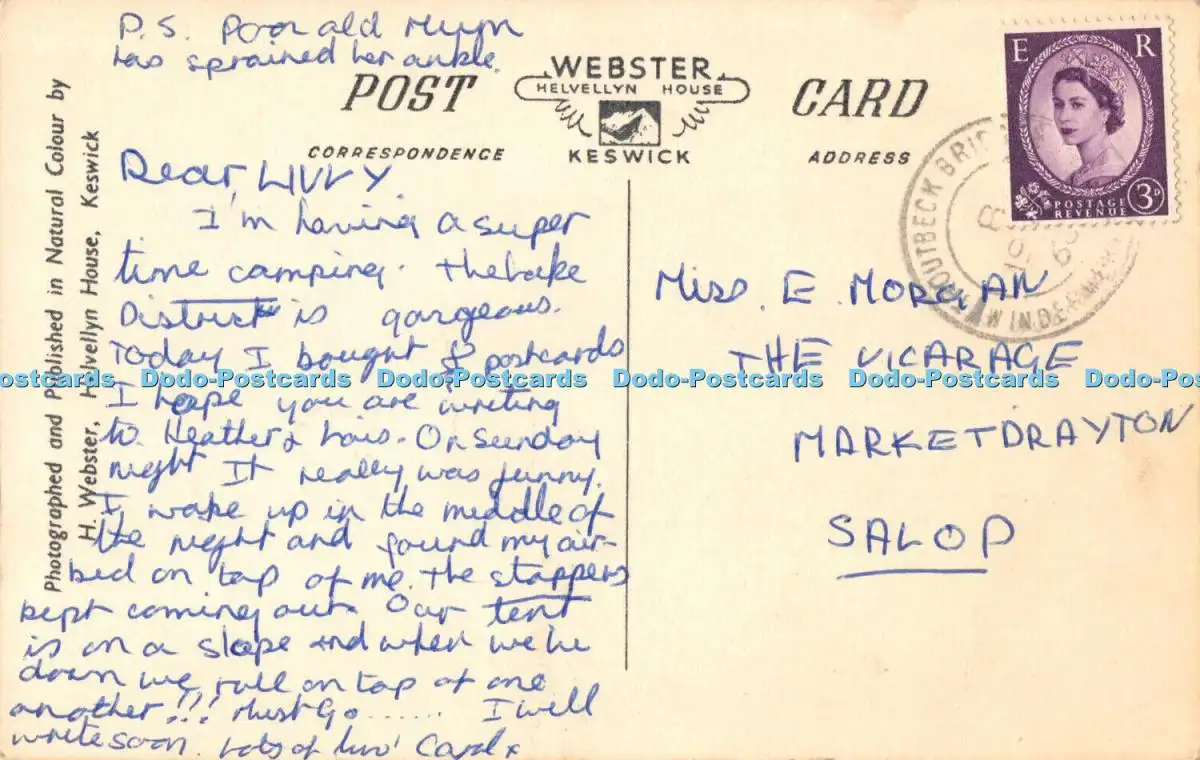 P.S. Poor old Mum
has sprained her ankle.
POST CARD
WEBSTER
HELVELLYN HOUSE
KESWICK
CORRESPONDENCE
ADDRESS
E R
POSTAGE
REVENUE
3D
TROUTBECK BRIDGE WINDERMERE
Photographed and Published in Natural Colour by
H. Webster, Helvellyn House, Keswick
Dear LIVVY
I'm having a super
time camping. The Lake
District is gorgeous.
Today I bought 8 postcards
I hope you are writing
to Heather & Lois. On Sunday
night It really was funny.
I wake up in the middle of
the night and found my air-
bed on top of me. The stoppers
kept coming out. Our tent
is on a slope and when we lie
down we roll on top of one
another!!! Must Go...... I will
write soon. Lots of luv' Carol x
Miss. E. MORGAN
THE VICARAGE
MARKETDRAYTON
SALOP
Dodo-Postcards Dodo-Postcards Dodo-Postcards Dodo-Postcards Dodo-Postcards Dodo-Postcards